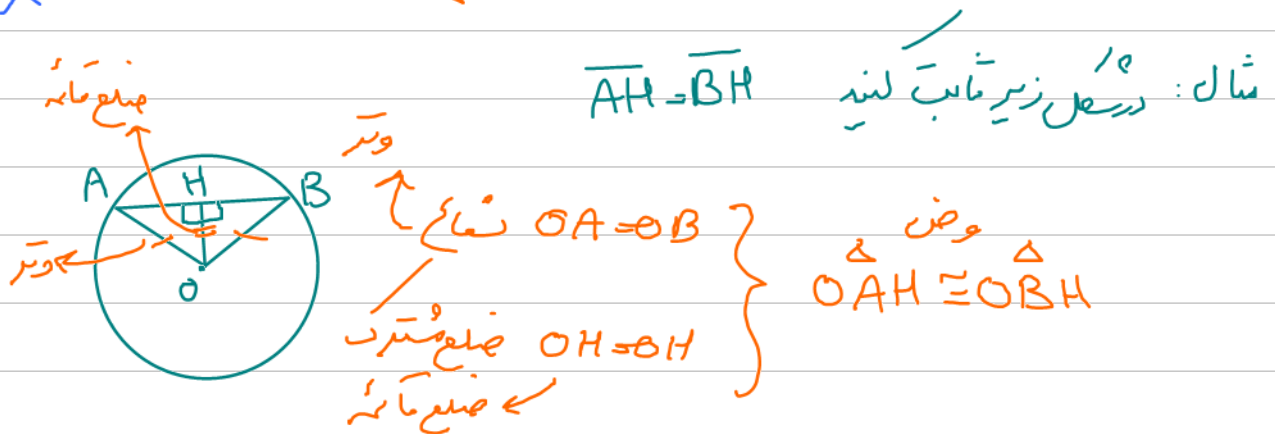 مثال: در شکل زیر ثابت کنید AH = BH
ضلع قائمه
وتر
A H B
وتر
O
OA = OB شعاع
OH = OH ضلع مشترک
ضلع قائمه
وض
OAH ≅ OBH